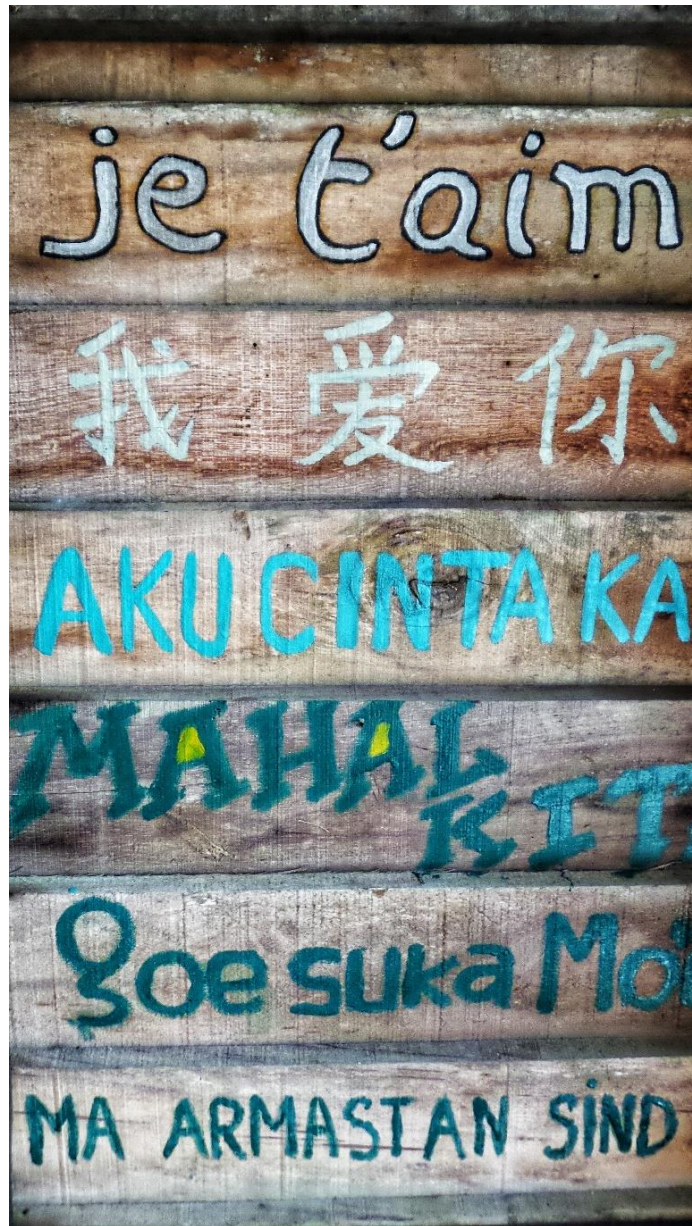 je t'aim
我爱你
AKU CINTA KA
MAHAL
KIT
goe suka Moi
MA ARMASTAN SIND